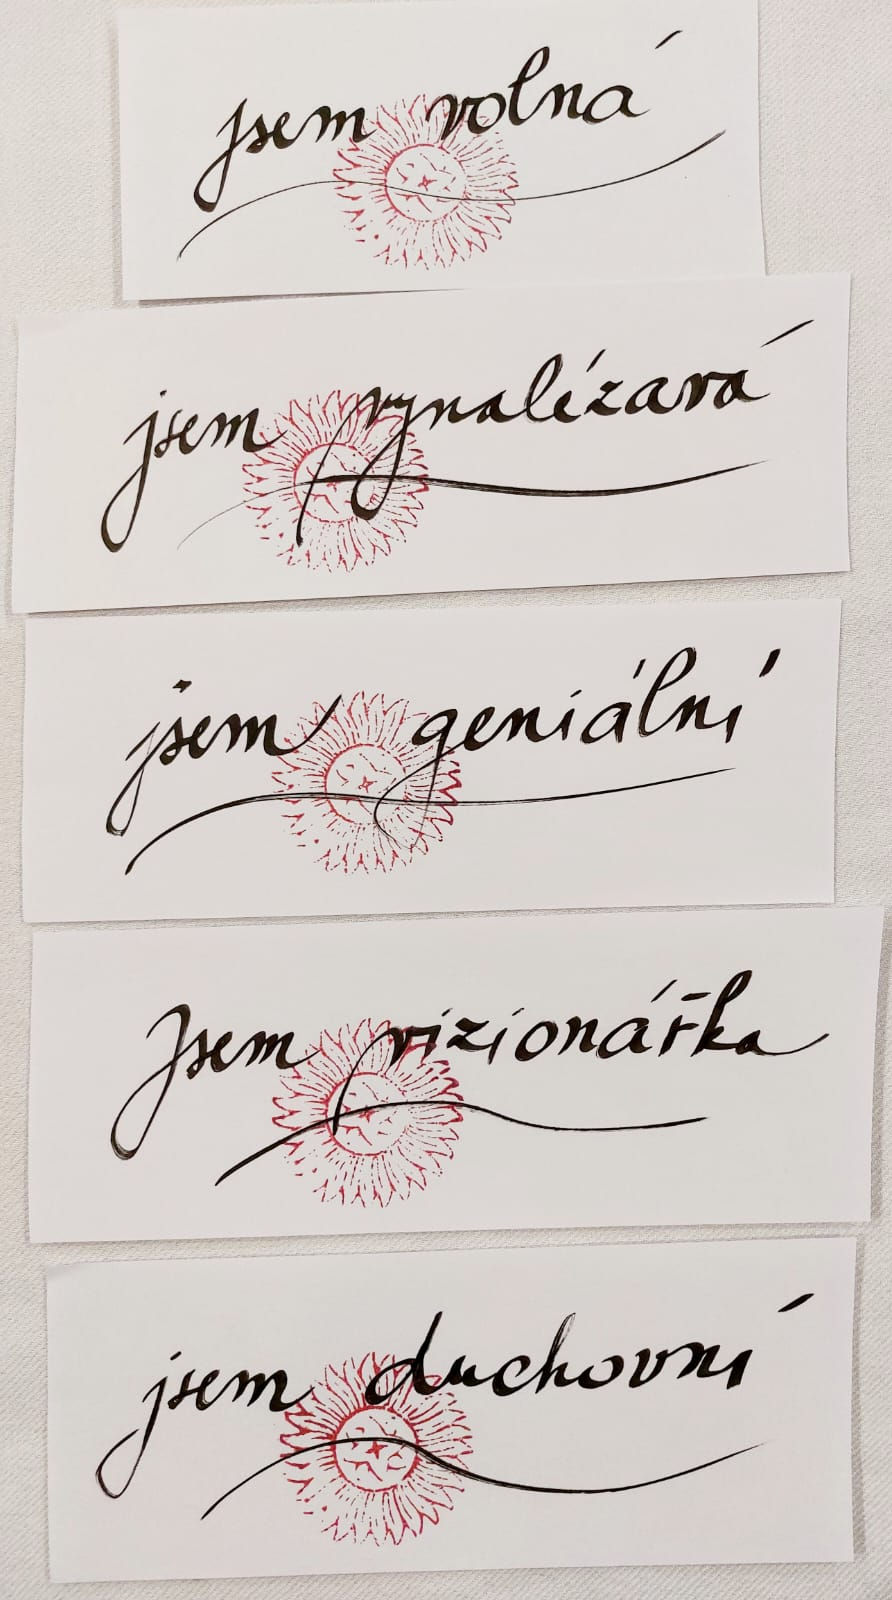 jsem volná
jsem vynalézavá
jsem geniální
Jsem vizionářka
jsem duchovní